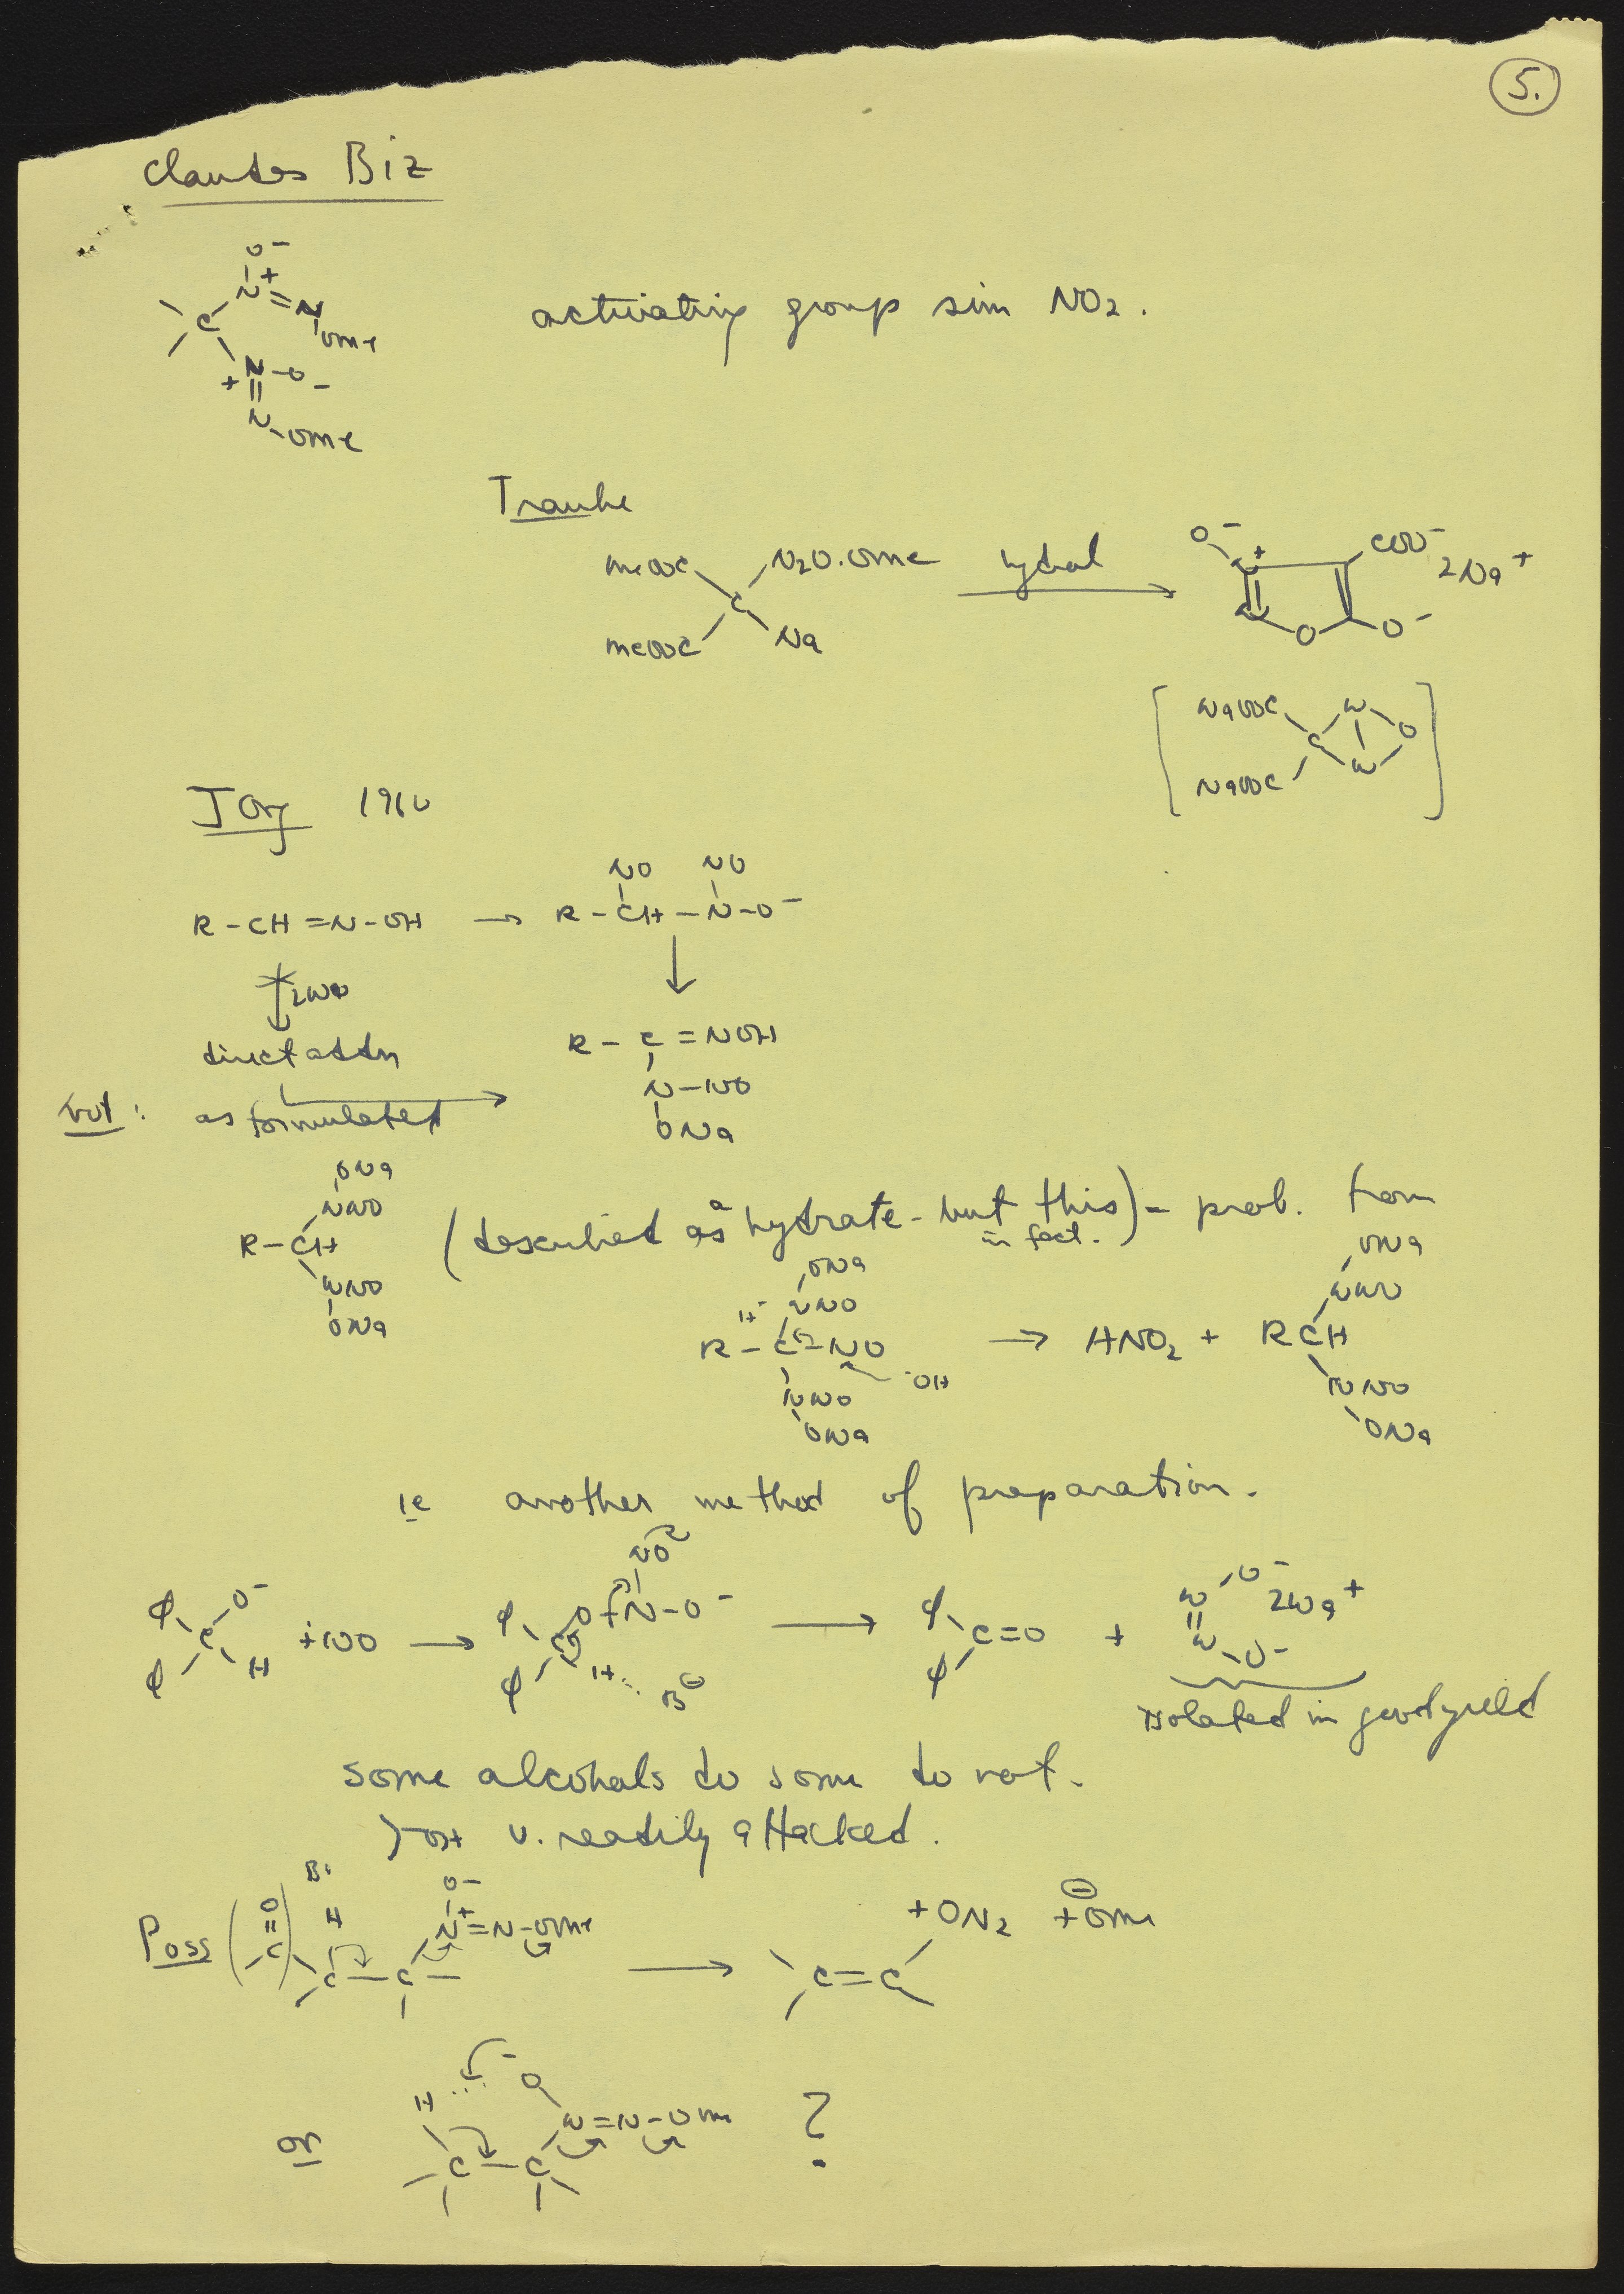 5.
Claudes Biz
O⁻
N⁺=N
C OMe
N-O⁻
+
N-OMe
activating group sim NO₂.
Traube
MeOOC N₂O.OMe hydrol COO⁻ 2Na⁺
C
MeOOC Na
O⁻ N⁺
N O O⁻
[NaOOC N O
C
NaOOC N]
J Org 1960
NO NO
R-CH=N-OH → R-CH-N-O⁻
2NO
direct addn
R-C=NOH
N-NO
ONa
not: as formulated
ONa
NNO
R-CH
NNO
ONa
(described as a hydrate - but this in fact.) - prob. from
ONa
NNO
R-C-NO → HNO₂ + RCH
OH
NNO
ONa
ONa
NNO
NNO
ONa
ie another method of preparation.
NO
φ O⁻
C + NO → φ C O N-O⁻ → φ C=O + N O⁻ 2Na⁺
φ H φ H B⊖ φ N-O⁻
isolated in good yield
some alcohols do some do not.
>-OH v. readily attacked.
Poss (O=C) B: H
C-C- N⁺=N-OMe O⁻
→ C=C + ON₂ + ⊖OMe
or H O⁻
C-C N=N-OMe ?